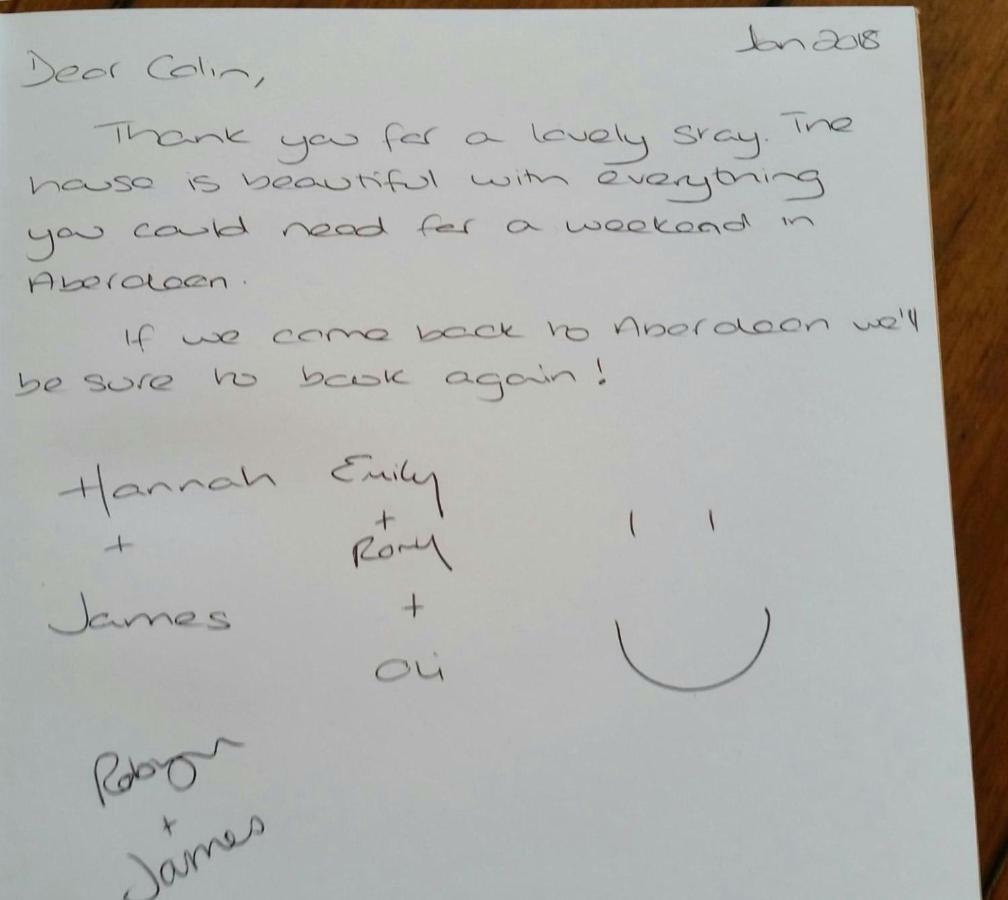 Jan 2018
Dear Colin,
Thank you for a lovely stay. The
house is beautiful with everything
you could need for a weekend in
Aberdeen.
If we come back to Aberdeen we'll
be sure to book again!
Hannah
+
James
Emily
+
Rory
+
Oli
Robyn
+
James